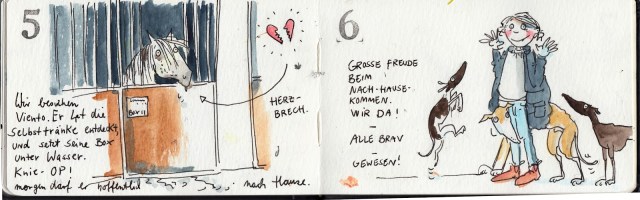 5
Wir besuchen
Viento. Er hat die
Selbsttränke entdeckt,
und setzt seine Box
unter Wasser.
Knie-OP!
morgen darf er hoffentlich nach Hause.
Box 11
HERZ-
BRECH.
6
GROSSE FREUDE
BEIM
NACH-HAUSE-
KOMMEN.
WIR DA!
–
ALLE BRAV
GEWESEN!